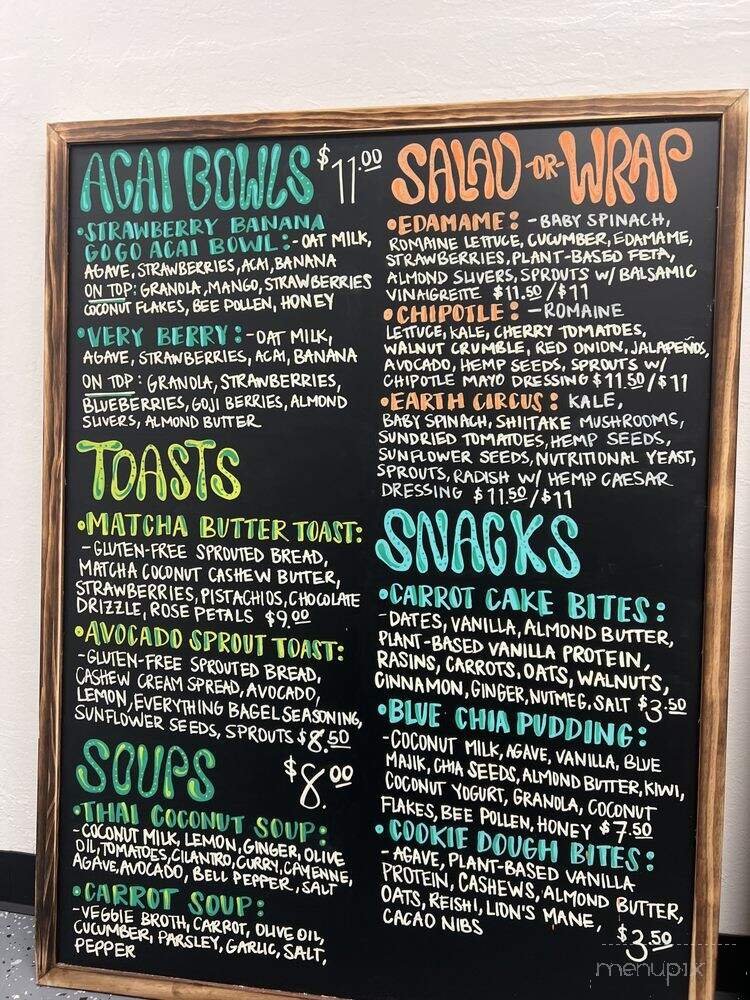 ACAI BOWLS $11.00
•STRAWBERRY BANANA
GOGO ACAI BOWL:-OAT MILK,
AGAVE, STRAWBERRIES, ACAI, BANANA
ON TOP: GRANOLA, MANGO, STRAWBERRIES
COCONUT FLAKES, BEE POLLEN, HONEY
•VERY BERRY:-OAT MILK,
AGAVE, STRAWBERRIES, ACAI, BANANA
ON TOP: GRANOLA, STRAWBERRIES,
BLUEBERRIES, GOJI BERRIES, ALMOND
SLIVERS, ALMOND BUTTER
TOASTS
•MATCHA BUTTER TOAST:
-GLUTEN-FREE SPROUTED BREAD,
MATCHA COCONUT CASHEW BUTTER,
STRAWBERRIES, PISTACHIOS, CHOCOLATE
DRIZZLE, ROSE PETALS $9.00
•AVOCADO SPROUT TOAST:
-GLUTEN-FREE SPROUTED BREAD,
CASHEW CREAM SPREAD, AVOCADO,
LEMON, EVERYTHING BAGEL SEASONING,
SUNFLOWER SEEDS, SPROUTS $8.50
SOUPS $8.00
•THAI COCONUT SOUP:
-COCONUT MILK, LEMON, GINGER, OLIVE
OIL, TOMATOES, CILANTRO, CURRY, CAYENNE,
AGAVE, AVOCADO, BELL PEPPER, SALT
•CARROT SOUP:
-VEGGIE BROTH, CARROT, OLIVE OIL,
CUCUMBER, PARSLEY, GARLIC, SALT,
PEPPER
SALAD -OR- WRAP
•EDAMAME: -BABY SPINACH,
ROMAINE LETTUCE, CUCUMBER, EDAMAME,
STRAWBERRIES, PLANT-BASED FETA,
ALMOND SLIVERS, SPROUTS W/ BALSAMIC
VINAIGRETTE $11.50/$11
•CHIPOTLE: -ROMAINE
LETTUCE, KALE, CHERRY TOMATOES,
WALNUT CRUMBLE, RED ONION, JALAPEÑOS,
AVOCADO, HEMP SEEDS, SPROUTS W/
CHIPOTLE MAYO DRESSING $11.50/$11
•EARTH CIRCUS: KALE,
BABY SPINACH, SHIITAKE MUSHROOMS,
SUNDRIED TOMATOES, HEMP SEEDS,
SUNFLOWER SEEDS, NUTRITIONAL YEAST,
SPROUTS, RADISH W/ HEMP CAESAR
DRESSING $11.50/$11
SNACKS
•CARROT CAKE BITES:
-DATES, VANILLA, ALMOND BUTTER,
PLANT-BASED VANILLA PROTEIN,
RASINS, CARROTS, OATS, WALNUTS,
CINNAMON, GINGER, NUTMEG, SALT $3.50
•BLUE CHIA PUDDING:
-COCONUT MILK, AGAVE, VANILLA, BLUE
MAJIK, CHIA SEEDS, ALMOND BUTTER, KIWI,
COCONUT YOGURT, GRANOLA, COCONUT
FLAKES, BEE POLLEN, HONEY $7.50
•COOKIE DOUGH BITES:
-AGAVE, PLANT-BASED VANILLA
PROTEIN, CASHEWS, ALMOND BUTTER,
OATS, REISHI, LION'S MANE,
CACAO NIBS $3.50
menupix